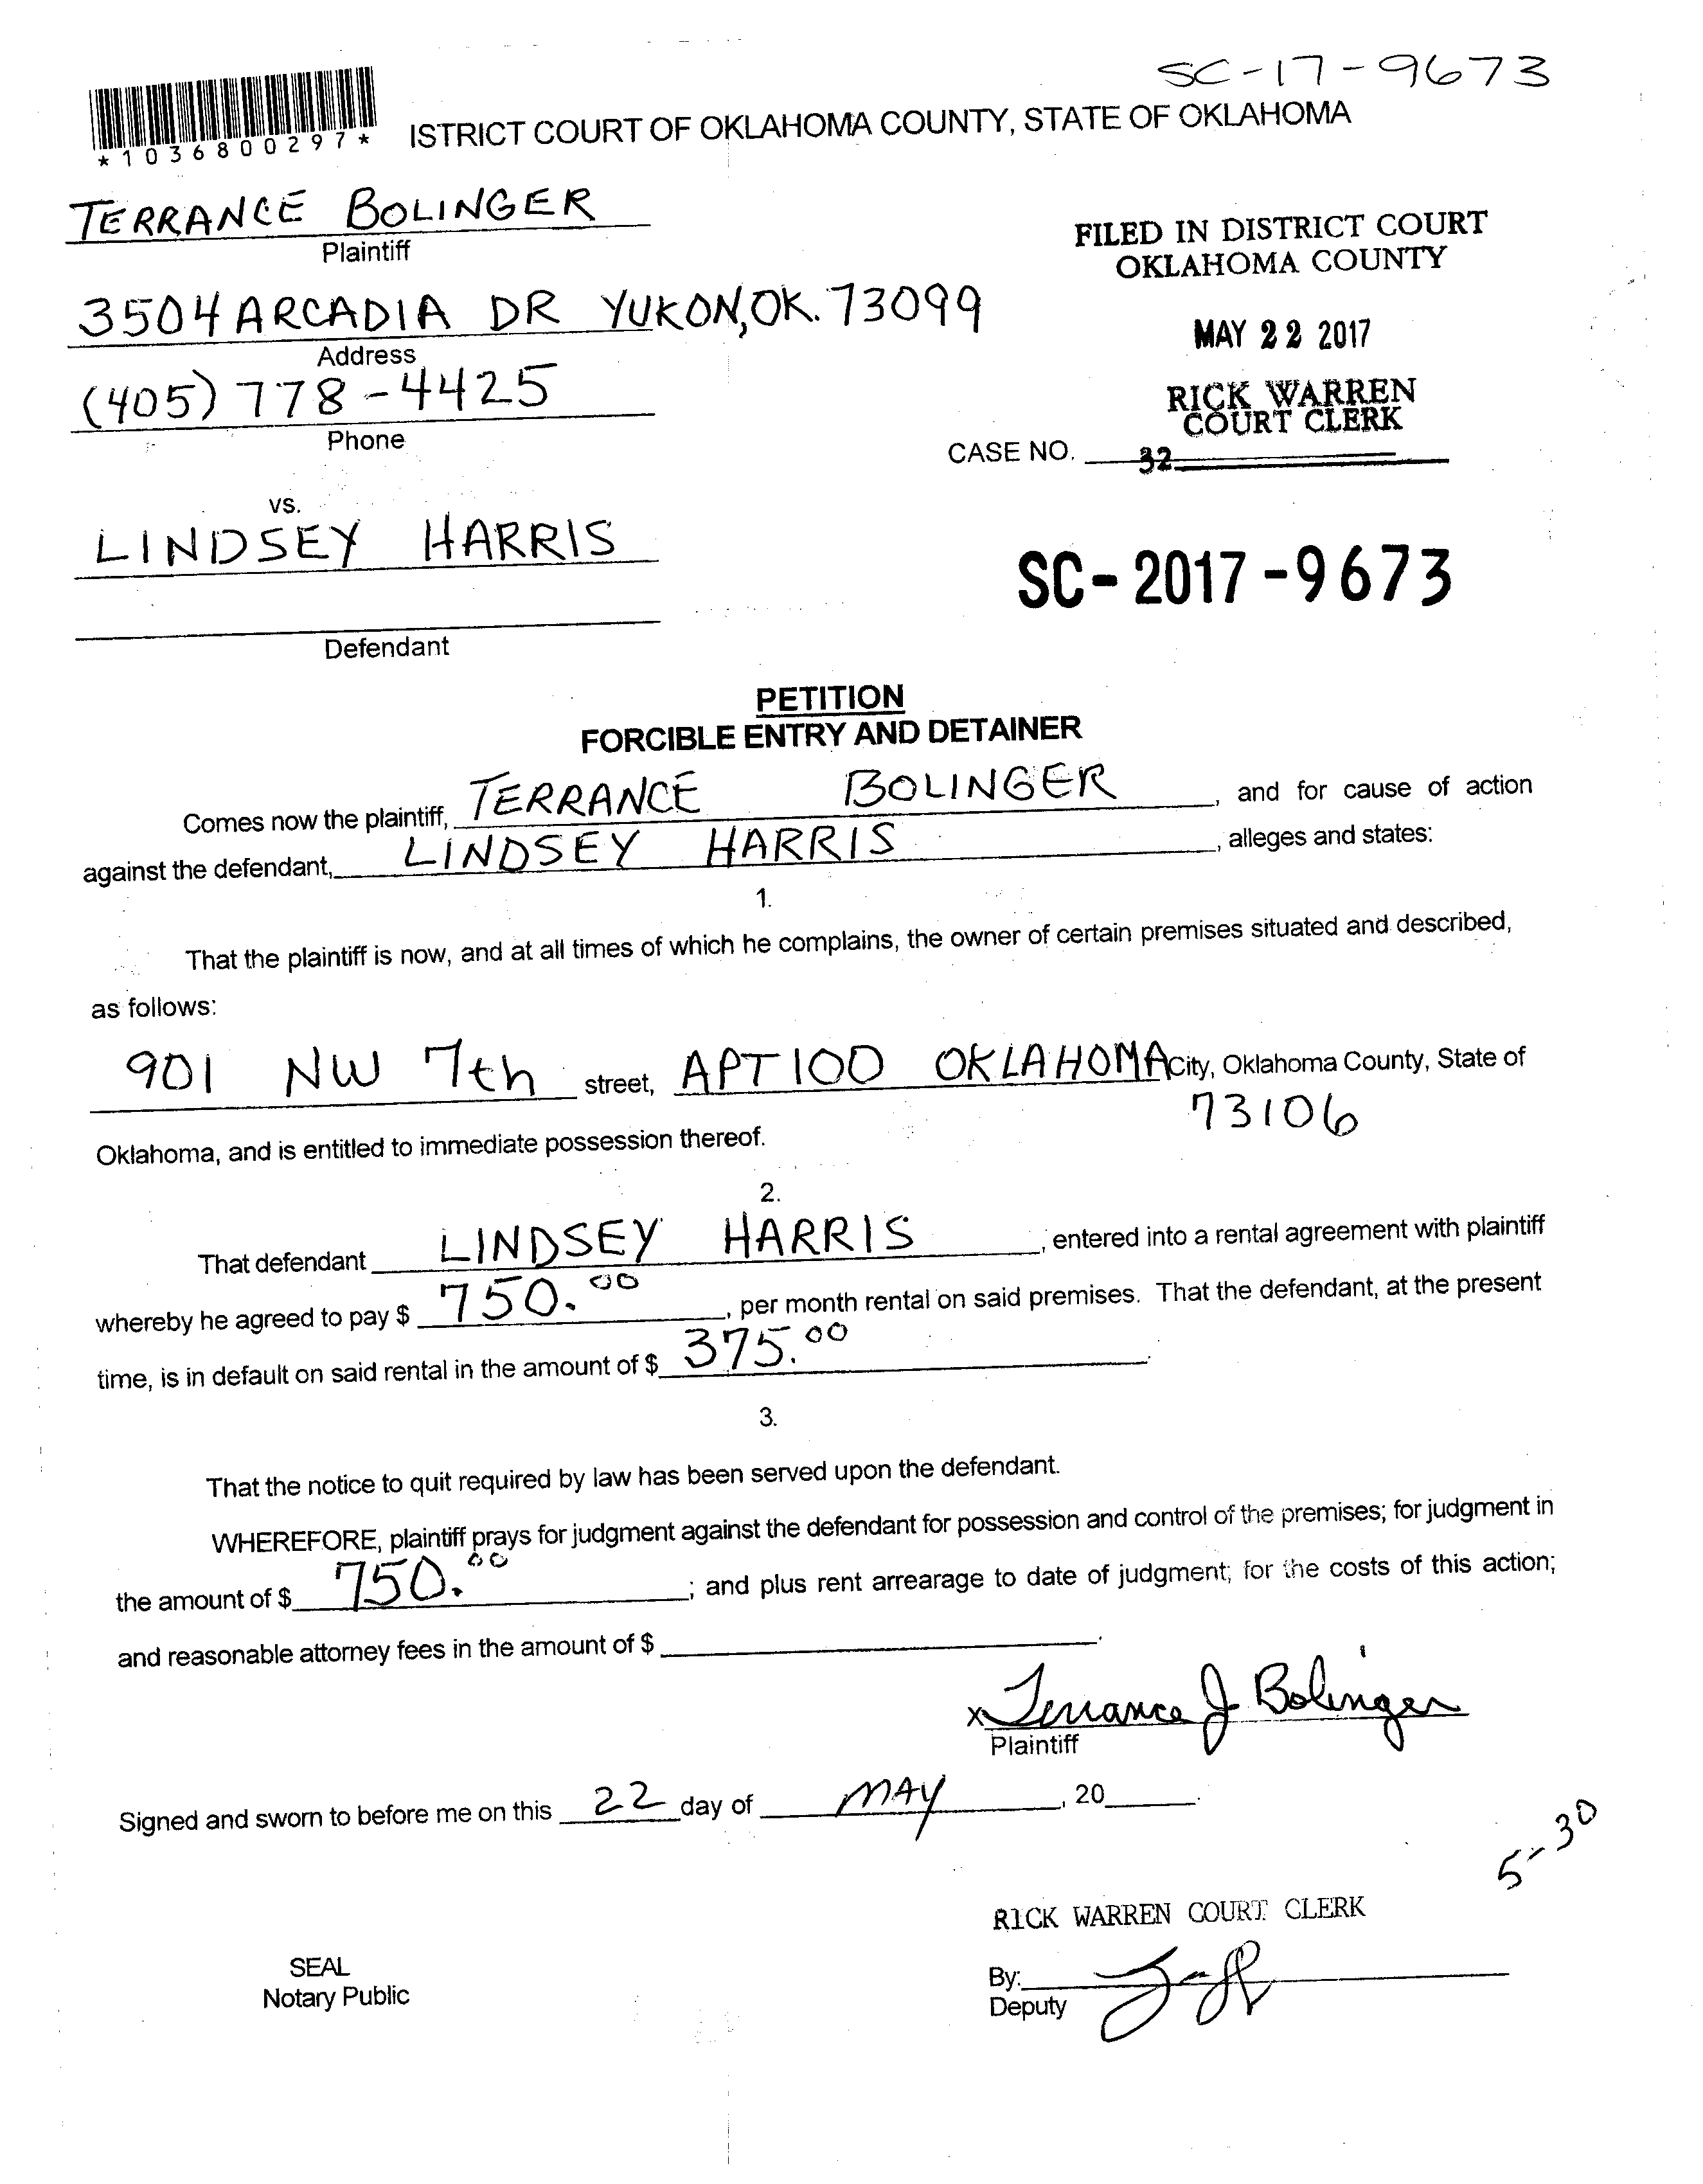 SC-17-9673
*1036800297*
ISTRICT COURT OF OKLAHOMA COUNTY, STATE OF OKLAHOMA
TERRANCE BOLINGER
Plaintiff
FILED IN DISTRICT COURT
OKLAHOMA COUNTY
3504 ARCADIA DR YUKON, OK. 73099
Address
MAY 22 2017
(405) 778-4425
Phone
RICK WARREN
COURT CLERK
CASE NO. 32
vs.
LINDSEY HARRIS
SC-2017-9673
Defendant
PETITION
FORCIBLE ENTRY AND DETAINER
Comes now the plaintiff, TERRANCE BOLINGER, and for cause of action
against the defendant, LINDSEY HARRIS, alleges and states:
1.
That the plaintiff is now, and at all times of which he complains, the owner of certain premises situated and described,
as follows:
901 NW 7th street, APT 100 OKLAHOMA City, Oklahoma County, State of
73106
Oklahoma, and is entitled to immediate possession thereof.
2.
That defendant LINDSEY HARRIS, entered into a rental agreement with plaintiff
whereby he agreed to pay $ 750.00, per month rental on said premises. That the defendant, at the present
time, is in default on said rental in the amount of $ 375.00.
3.
That the notice to quit required by law has been served upon the defendant.
WHEREFORE, plaintiff prays for judgment against the defendant for possession and control of the premises; for judgment in
the amount of $ 750.00; and plus rent arrearage to date of judgment; for the costs of this action;
and reasonable attorney fees in the amount of $ .
x Terrance J Bolinger
Plaintiff
Signed and sworn to before me on this 22 day of MAY, 20 .
5-30
RICK WARREN COURT CLERK
SEAL
Notary Public
By:
Deputy